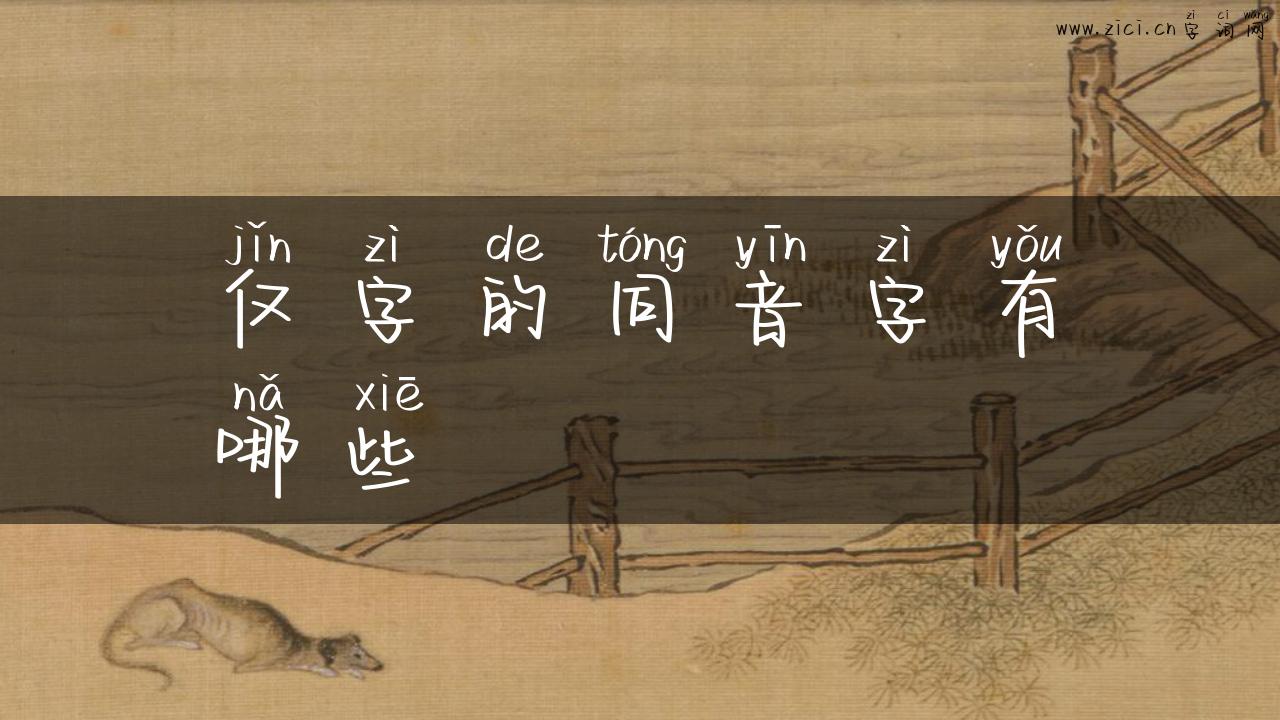 zì cí wǎng
www.zici.cn 字词网
jǐn zì de tóng yīn zì yǒu
仅字的同音字有
nǎ xiē
哪些